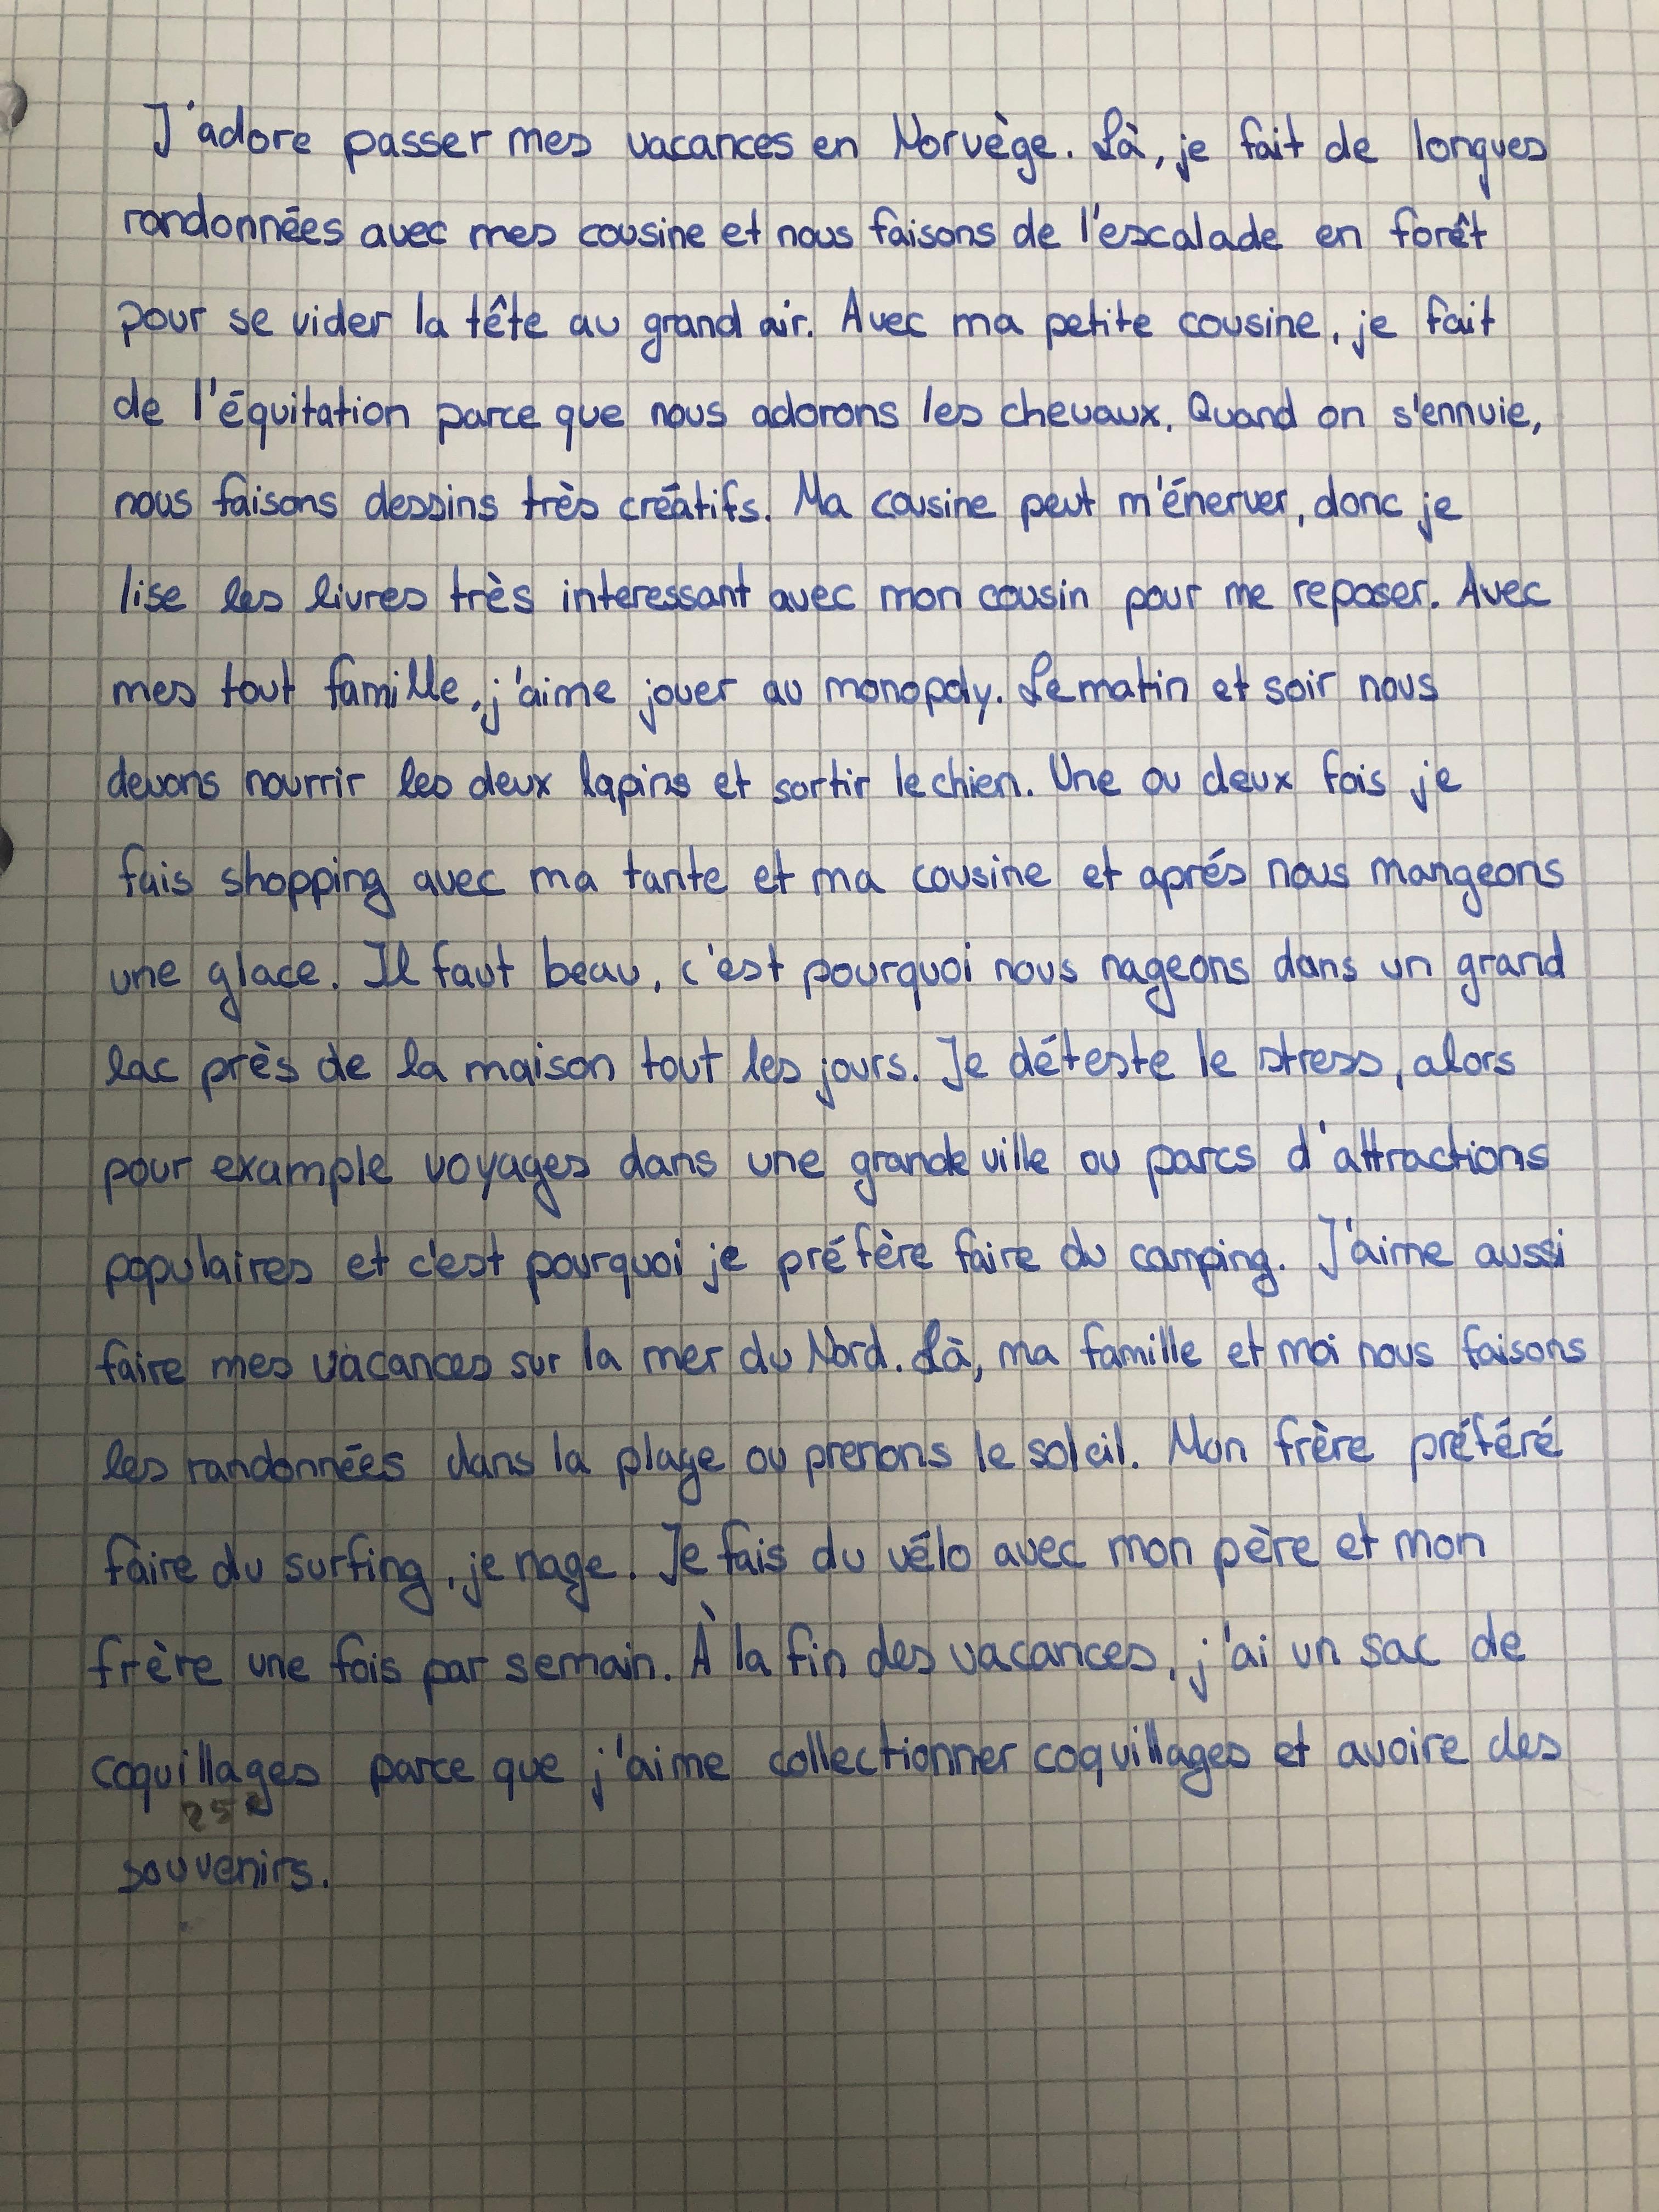 J'adore passer mes vacances en Norvège. Là, je fait de longues
randonnées avec mes cousine et nous faisons de l'escalade en forêt
pour se vider la tête au grand air. Avec ma petite cousine, je fait
de l'équitation parce que nous adorons les chevaux. Quand on s'ennuie,
nous faisons dessins très créatifs. Ma cousine peut m'énerver, donc je
lise les livres très interessant avec mon cousin pour me reposer. Avec
mes tout famille, j'aime jouer au monopoly. Le matin et soir nous
devons nourrir les deux lapins et sortir le chien. Une ou deux fois je
fais shopping avec ma tante et ma cousine et aprés nous mangeons
une glace. Il faut beau, c'est pourquoi nous nageons dans un grand
lac près de la maison tout les jours. Je déteste le stress, alors
pour example voyages dans une grande ville ou parcs d'attractions
populaires et c'est pourquoi je préfère faire du camping. J'aime aussi
faire mes vacances sur la mer du Nord. Là, ma famille et moi nous faisons
les randonnées dans la plage ou prenons le soleil. Mon frère préféré
faire du surfing, je nage. Je fais du vélo avec mon père et mon
frère une fois par semain. À la fin des vacances, j'ai un sac de
coquillages parce que j'aime collectionner coquillages et avoire des
souvenirs.